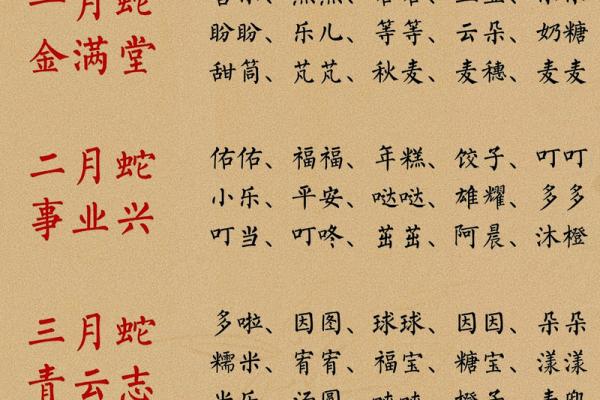 一月蛇
金满堂
盼盼、乐儿、等等、云朵、奶糖
甜筒、芃芃、秋麦、麦穗、麦麦
二月蛇
事业兴
佑佑、福福、年糕、饺子、叮叮
小乐、平安、哒哒、雄耀、多多
叮当、叮咚、茁茁、阿晨、沐橙
三月蛇
青云志
多啦、因图、球球、因因、朵朵
糯米、宥宥、福宝、糖宝、漾漾